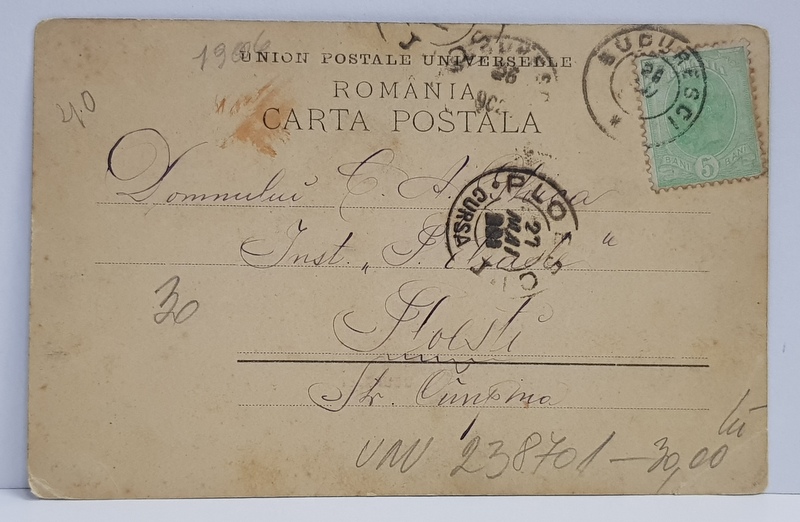 1906
UNION POSTALE UNIVERSELLE
ROMÂNIA
CARTA POSTALA
40
BUCURESCI
BANI 5 BANI
Domnului C. A.
PLOESCI
27
MAI
CURSA
Inst. „
30
Ploesti
Str. Câmpina
UNU 238701 – 30,00 lei